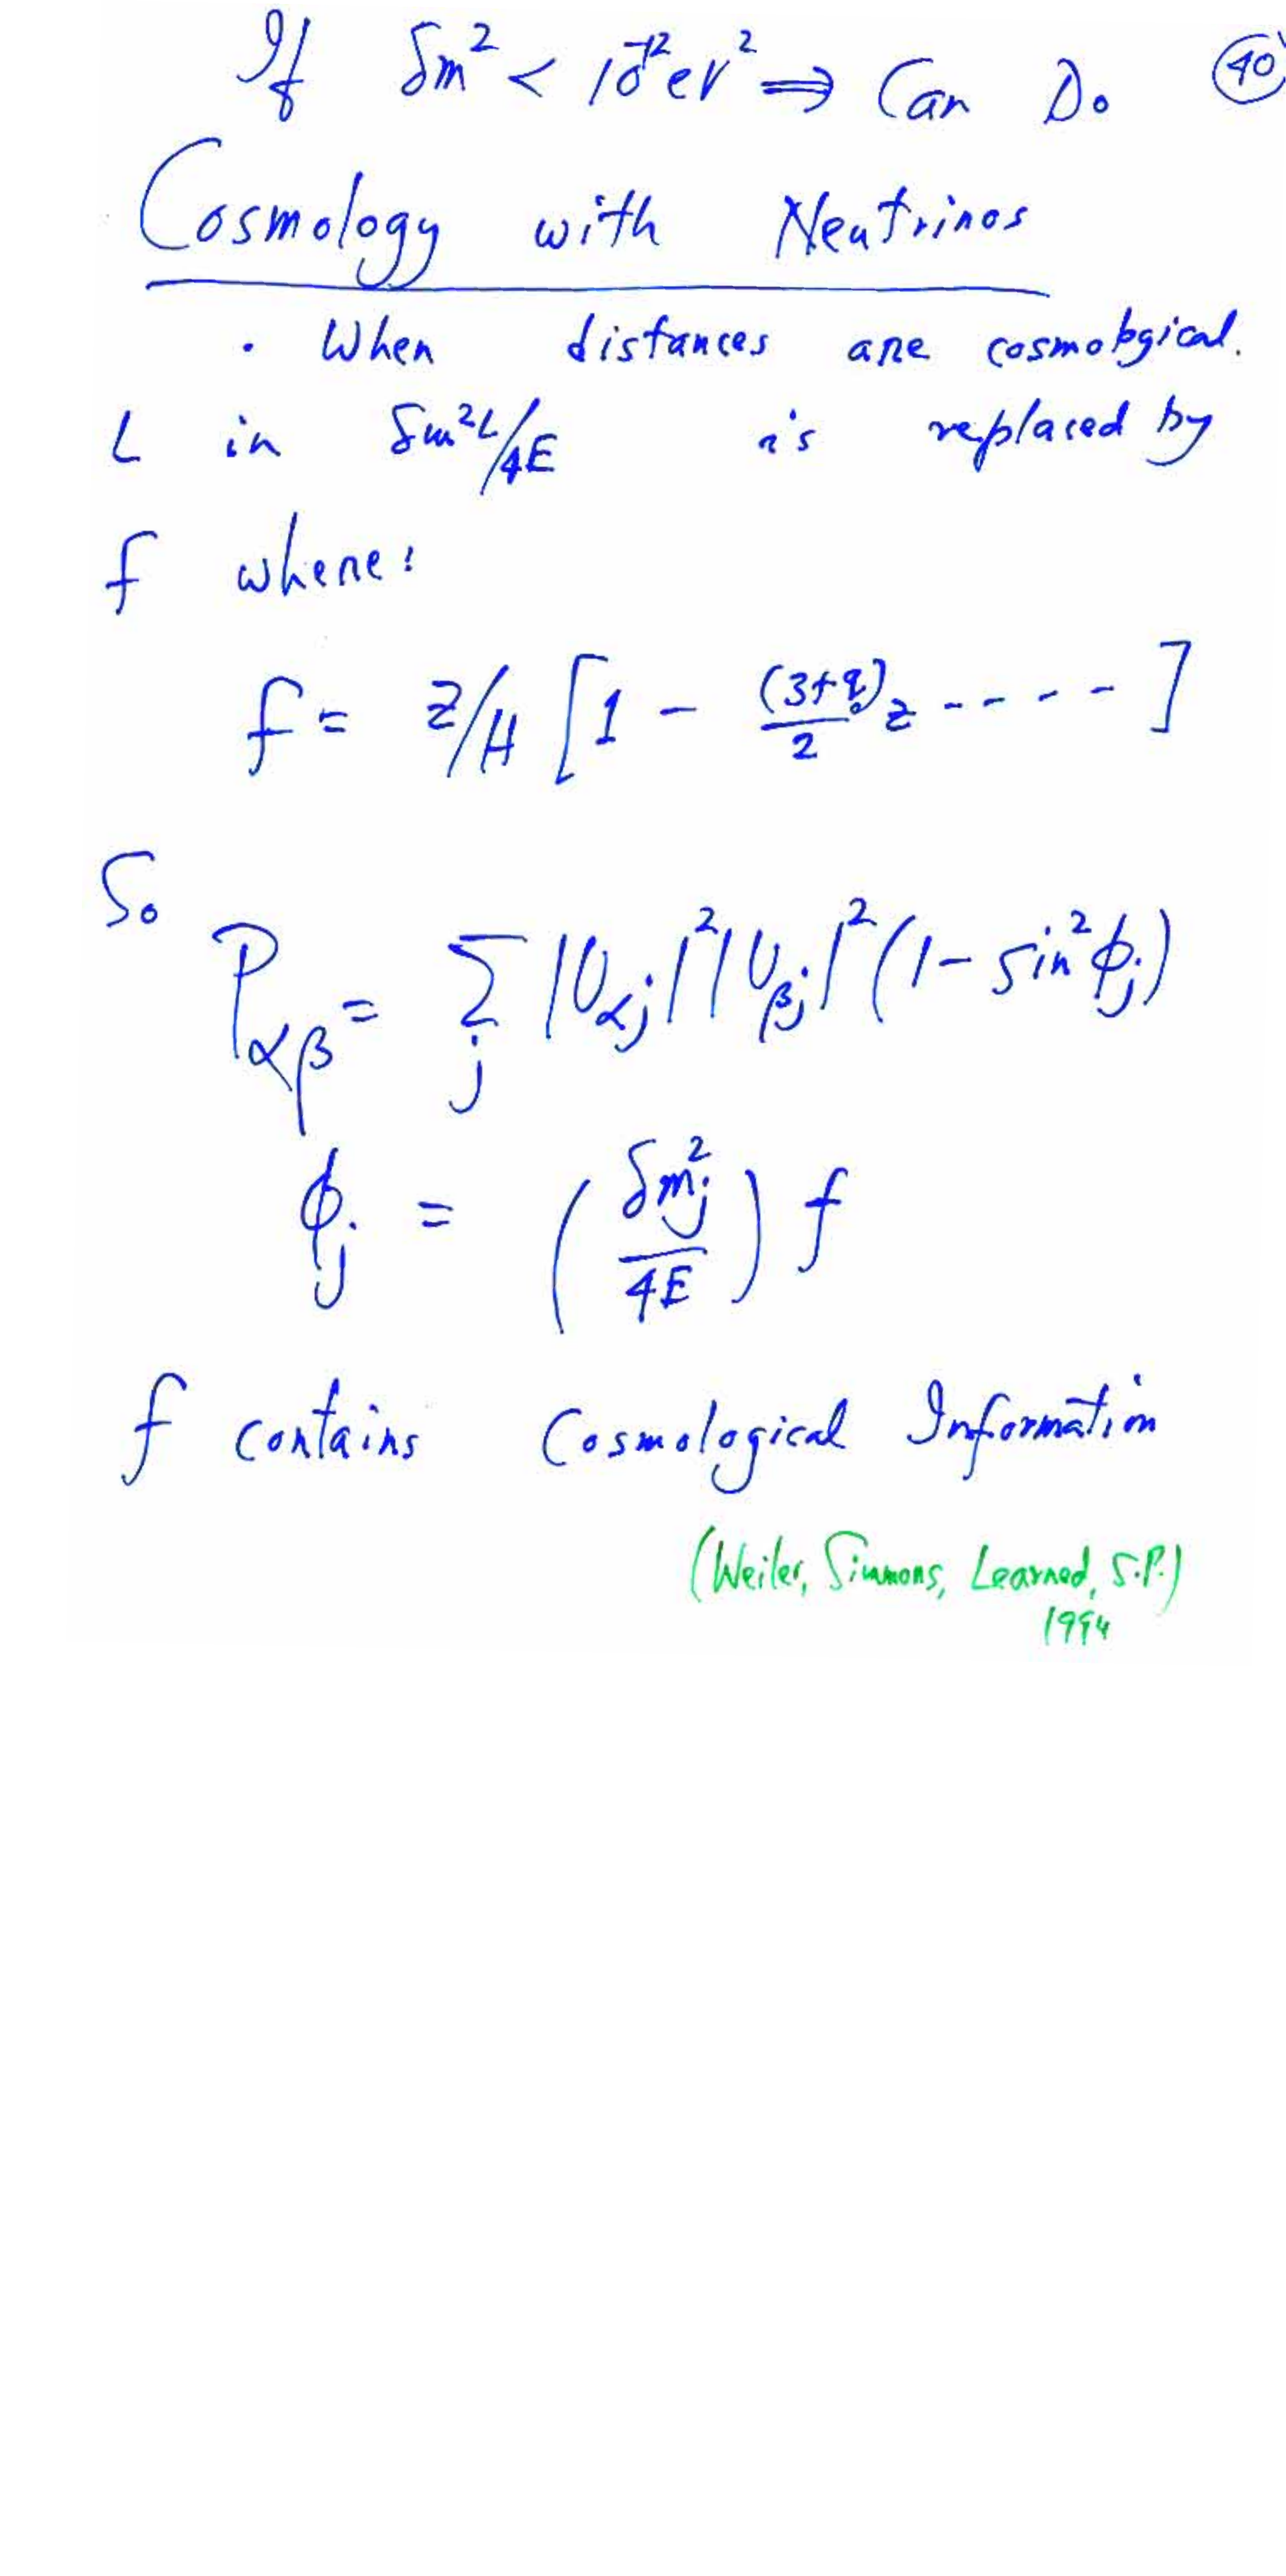 If δm² < 10⁻¹² eV² ⇒ Can Do 40
Cosmology with Neutrinos
· When distances are cosmological.
L in δm²L/4E is replaced by
f where:
f = z/H [1 - (3+q₀)/2 z - - - - ]
So
P_αβ = Σ_j |U_αj|² |U_βj|² (1 - sin² φ_j)
φ_j = (δm_j²/4E) f
f contains Cosmological Information
(Weiler, Simmons, Learned, S.P.)
1994